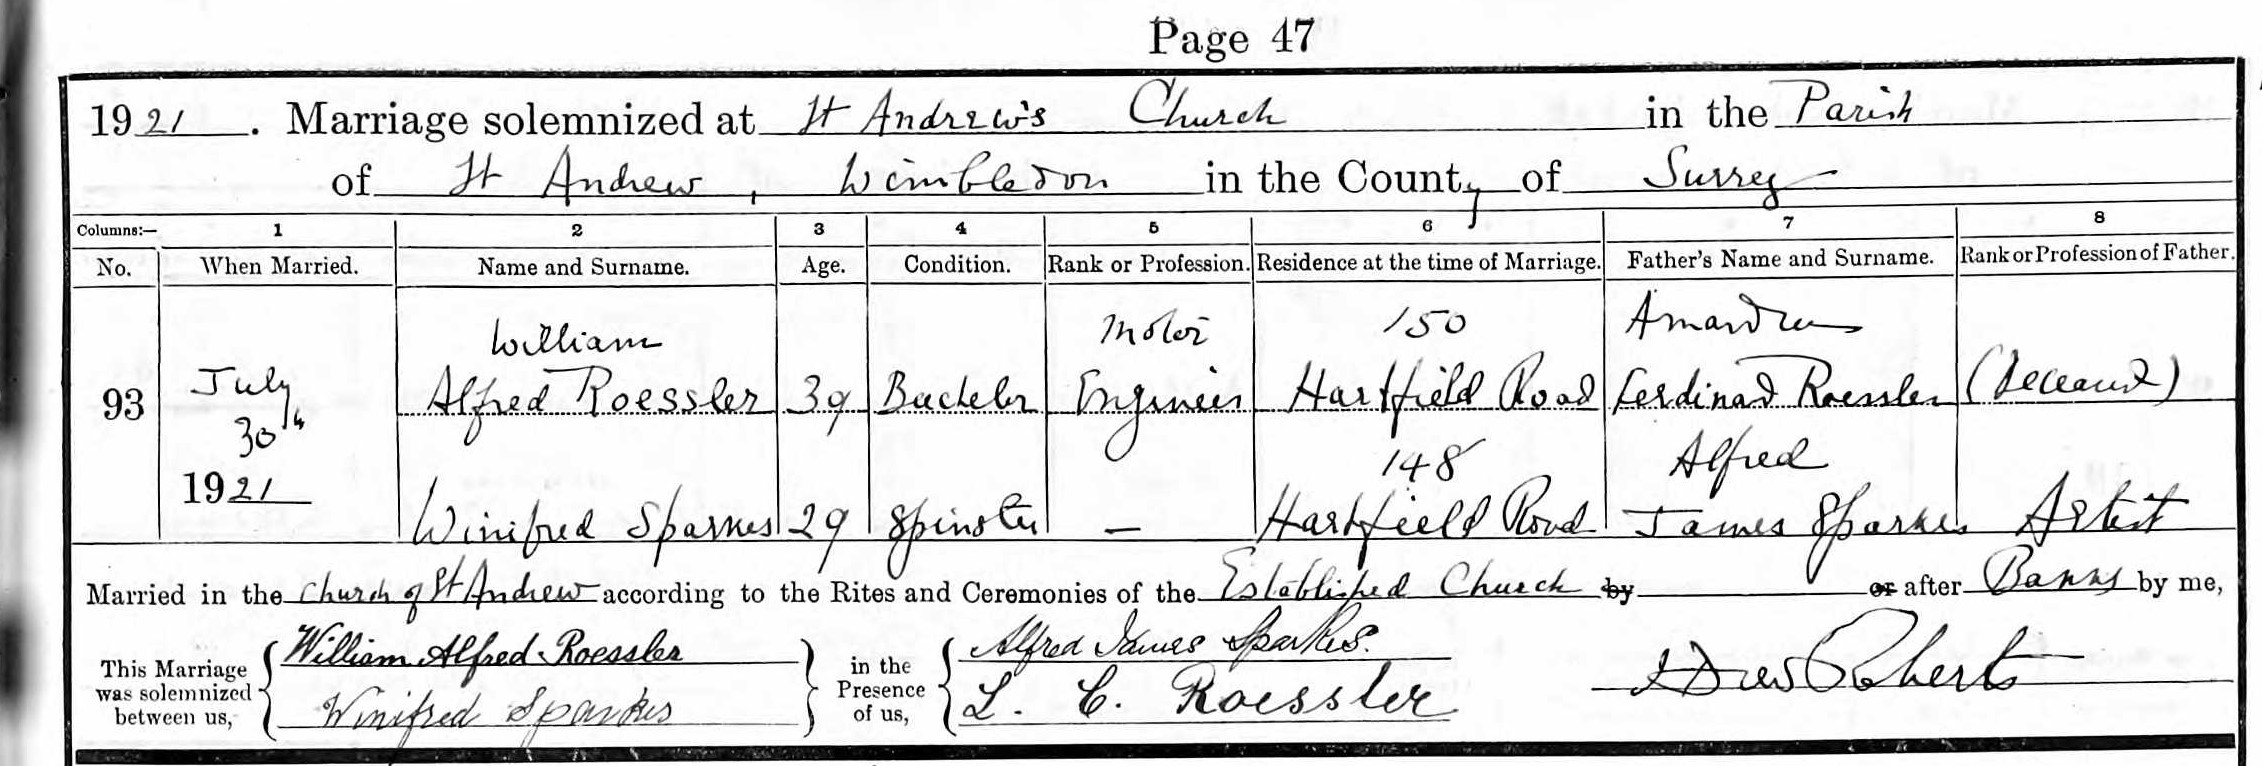 Page 47
1921. Marriage solemnized at St Andrew's Church in the Parish
of St Andrew, Wimbledon in the County of Surrey
Columns:— 1 2 3 4 5 6 7 8
No. When Married. Name and Surname. Age. Condition. Rank or Profession. Residence at the time of Marriage. Father's Name and Surname. Rank or Profession of Father.
William Motor 150
93 July 30th Alfred Roessler 39 Bachelor Engineer Hartfield Road Ferdinand Roessler (Deceased)
148 Alfred
1921 Winifred Sparkes 29 Spinster — Hartfield Road James Sparkes Artist
Married in the Church of St Andrew according to the Rites and Ceremonies of the Established Church by or after Banns by me,
This Marriage was solemnized between us, William Alfred Roessler in the Presence of us, Alfred James Sparkes.
Winifred Sparkes L. C. Roessler Roberts